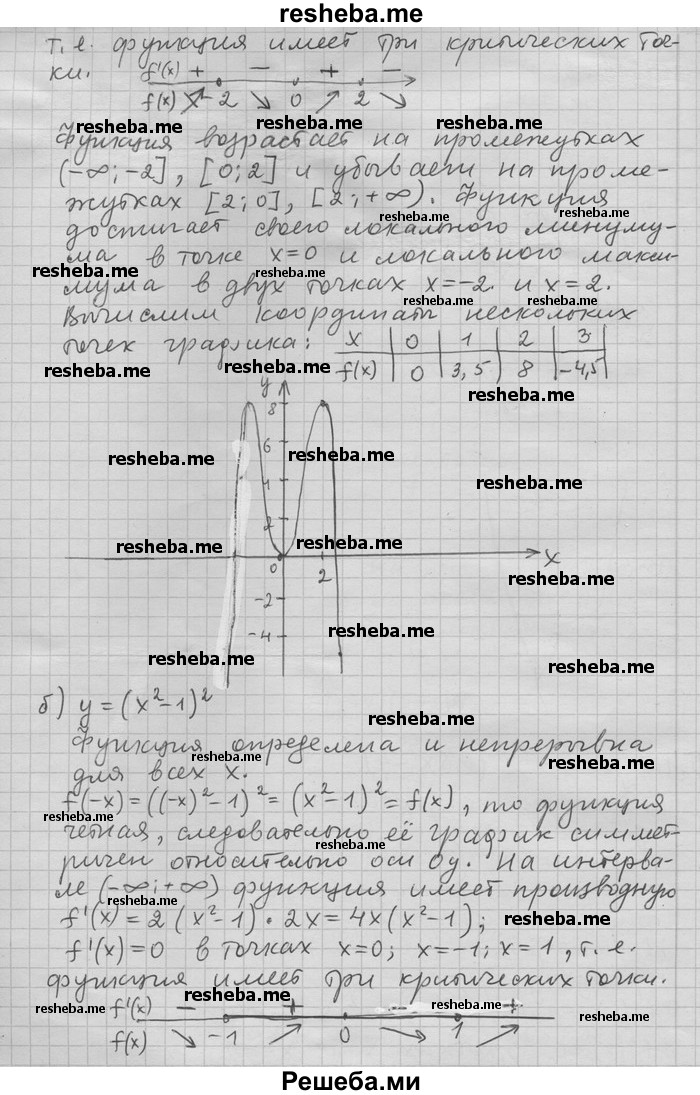 resheba.me
т. е. функция имеет три критических точ-
ки. f'(x) + − + −
f(x) -2 0 2
resheba.me resheba.me resheba.me
Функция возрастает на промежутках
(-∞; -2], [0; 2] и убывает на проме-
жутках [2; 0], [2; +∞). Функция
resheba.me
достигает своего локального минуму-
ма в точке x=0 и локального макси-
resheba.me resheba.me
мума в двух точках x=-2 и x=2.
resheba.me resheba.me
Вычислим координаты нескольких
точек графика: x 0 1 2 3
f(x) 0 3,5 8 -4,5
resheba.me resheba.me resheba.me
y
8
6
resheba.me resheba.me
4
resheba.me
2
resheba.me resheba.me
0 2 x
resheba.me
-2
-4
resheba.me
resheba.me resheba.me
б) y = (x²-1)²
resheba.me
Функция определена и непрерывна
resheba.me resheba.me
для всех x.
f(-x) = ((-x)²-1)² = (x²-1)² = f(x), то функция
resheba.me
четная, следовательно её график симмет
resheba.me
ричен относительно оси Oy. На интерва-
ле (-∞; +∞) функция имеет производную
resheba.me
f'(x) = 2(x²-1)·2x = 4x(x²-1);
resheba.me
f'(x)=0 в точках x=0; x=-1; x=1, т. е.
функция имеет три критических точки.
resheba.me resheba.me resheba.me resheba.me
f'(x) − + − +
f(x) -1 0 1
Решеба.ми